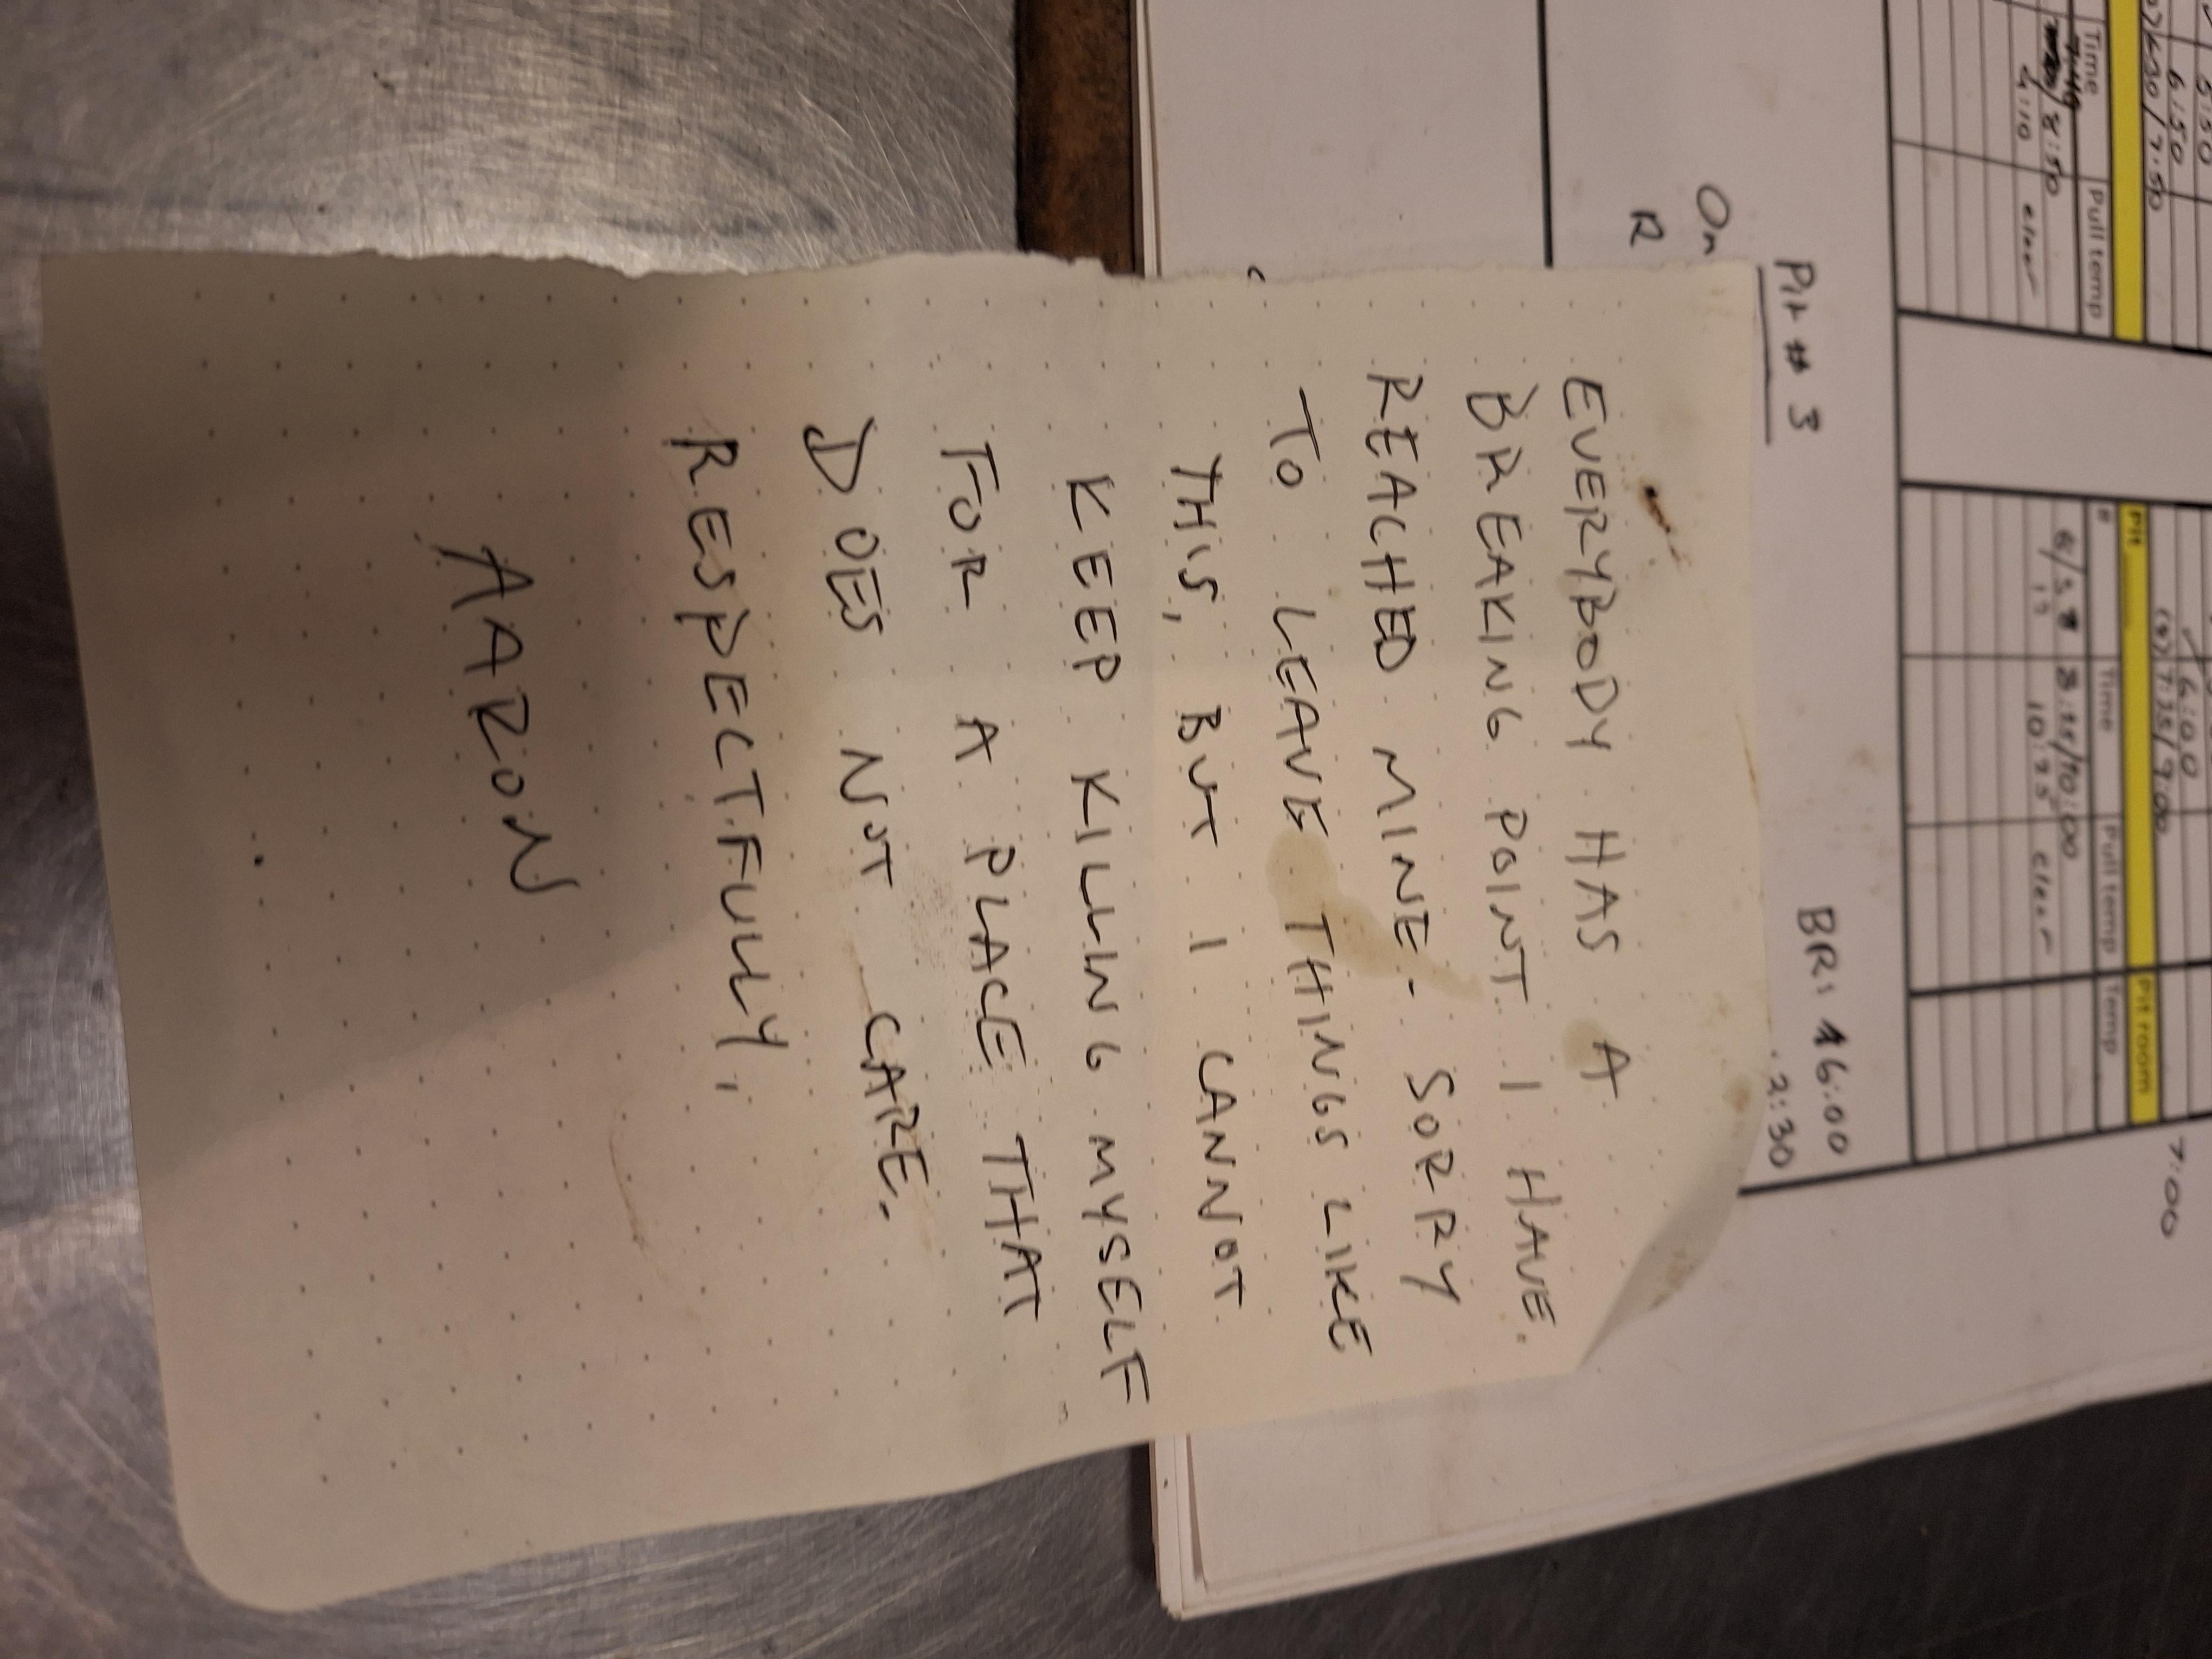 EVERYBODY HAS A
BREAKING POINT I HAVE
REACHED MINE. SORRY
TO LEAVE THINGS LIKE
THIS, BUT I CANNOT
KEEP KILLING MYSELF
FOR A PLACE THAT
DOES NOT CARE.
RESPECTFULLY,
AARON
Pit # 3
BR: 16:00
2:30
On
R
Time
Pull temp
8:50
4:10 clear
6:50
7:50
Pit
Pit room
#
Time
Pull temp
Temp
10:00
clear
6:00
7:35/9:00
7:00